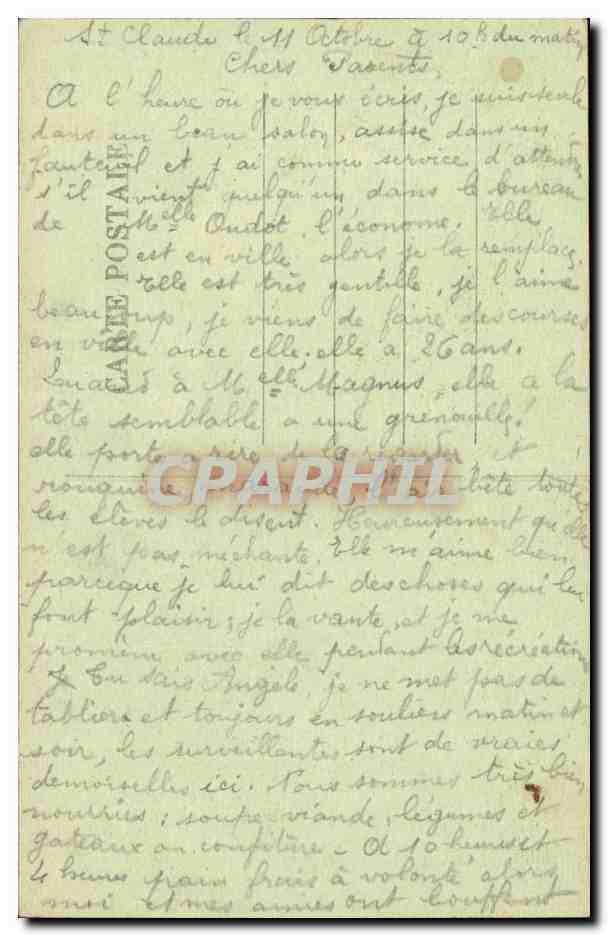 St Claude le 11 Octobre à 10h du matin
Chers Parents,
A l'heure où je vous écris, je suis seule
dans un beau salon, assise dans un
fauteuil et j'ai comme service d'attendre
s'il vient quelqu'un dans le bureau
de Melle Oudot, l'économe. Elle
est en ville alors je la remplace.
Elle est très gentille, je l'aime
beaucoup, je viens de faire des courses
en ville avec elle, elle a 26 ans.
Quand à Melle Magnus, elle a la
tête semblable a une grenouille!
elle porte a rire de la regarder, et
l'air bête toutes
les élèves le disent. Heureusement qu'elle
n'est pas méchante. Elle m'aime bien
parceque je lui dit des choses qui lui
font plaisir; je la vante, et je me
promène avec elle pendant les récréations
Tu sais Angèle, je ne met pas de
tabliers et toujours en souliers matin et
soir, les surveillantes sont de vraies
demoiselles ici. Nous sommes très bien
nourries: soupe viande, légumes et
gateaux ou confiture - A 10 heures et
4 heures pain frais à volonté alors
moi et mes amies ont bouffent
CARTE POSTALE
CPAPHIL